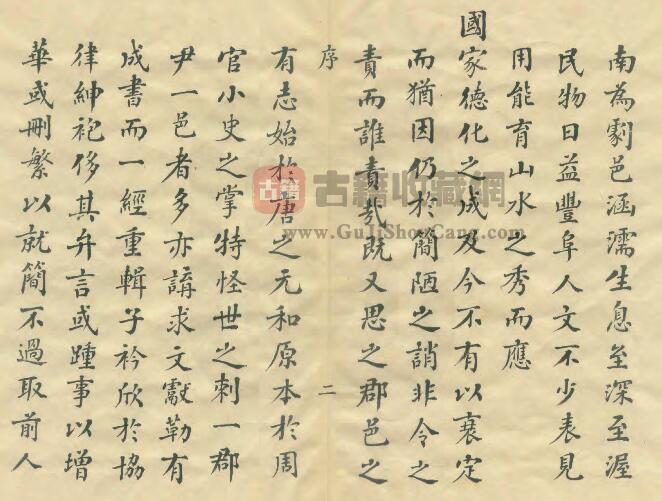 南為劇邑涵濡生息至深至渥
民物日益豐阜人文不少表見
用能育山水之秀而應
國家德化之成及今不有以裒定
而猶因仍於簡陋之誚非令之
責而誰責哉既又思之郡邑之
序 二
有志始於唐之元和原本於周
官小史之掌特怪世之刺一郡
尹一邑者多亦講求文獻勒有
成書而一經重輯子衿欣於協
律紳袍侈其弁言或踵事以增
華或刪繁以就簡不過取前人
古籍 古籍收藏網
www.GuJiShouCang.com